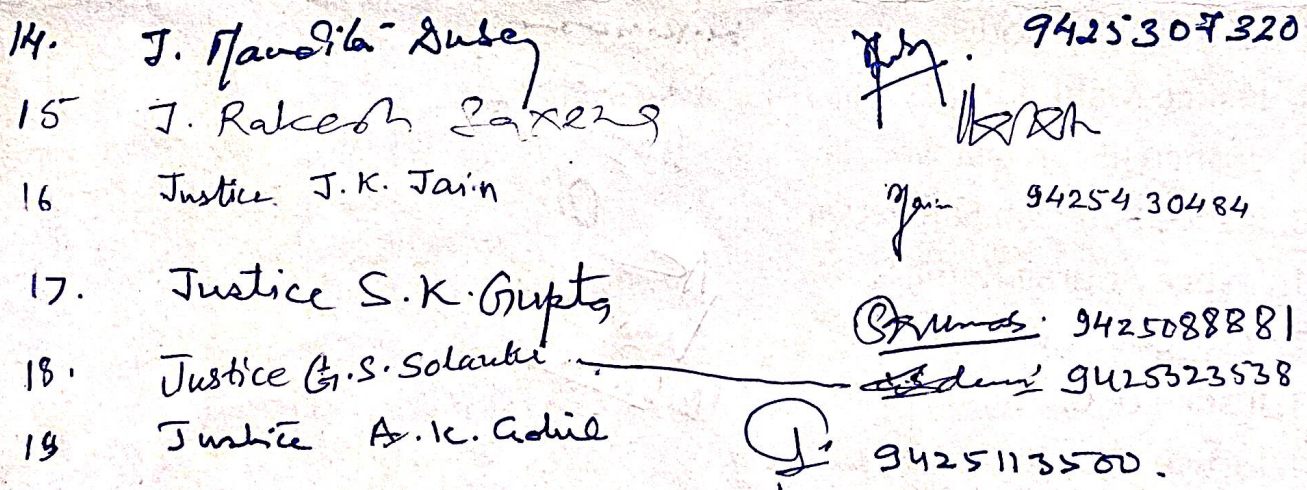 14. J. Nandita Dubey 9425307320
15 J. Rakesh Saxena
16 Justice J.K. Jain Jain 94254 30484
17. Justice S.K. Gupta 9425088881
18. Justice G.S. Solanki 9425323538
19 Justice A.K. Gohil 9425113500.